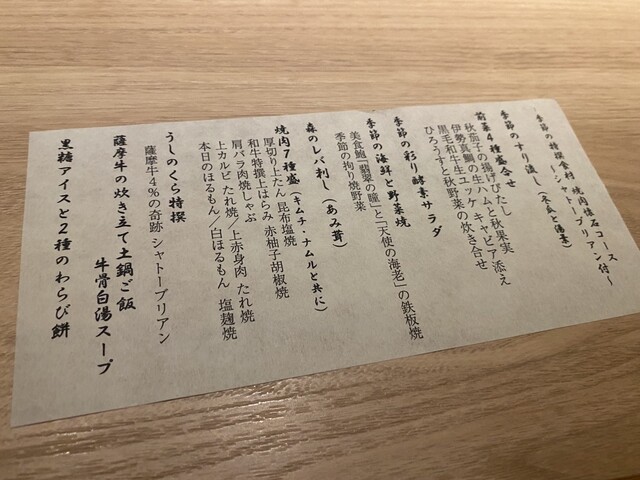 季節の特撰食材 焼肉懐石コース
～シャトーブリアン付～
季節のすり流し（冬瓜と陽菜）
前菜4種盛合せ
秋茄子の揚げびたし
伊勢真鯛の生ハムと秋果実
黒毛和牛生ユッケ キャビア添え
ひろうすと秋野菜の炊き合せ
季節の彩り酵素サラダ
季節の海鮮と野菜焼
美食鮑「翡翠の瞳」と「天使の海老」の鉄板焼
季節の拘り焼野菜
森のレバ刺し（あみ茸）
焼肉7種盛（キムチ・ナムルと共に）
厚切り上たん 昆布塩焼
和牛特撰上はらみ 赤柚子胡椒焼
肩バラ肉焼しゃぶ
上カルビ たれ焼／上赤身肉 たれ焼
本日のほるもん／白ほるもん 塩麹焼
うしのくら特撰
薩摩牛4%の奇跡 シャトーブリアン
薩摩牛の炊き立て土鍋ご飯
牛骨白湯スープ
黒糖アイスと2種のわらび餅